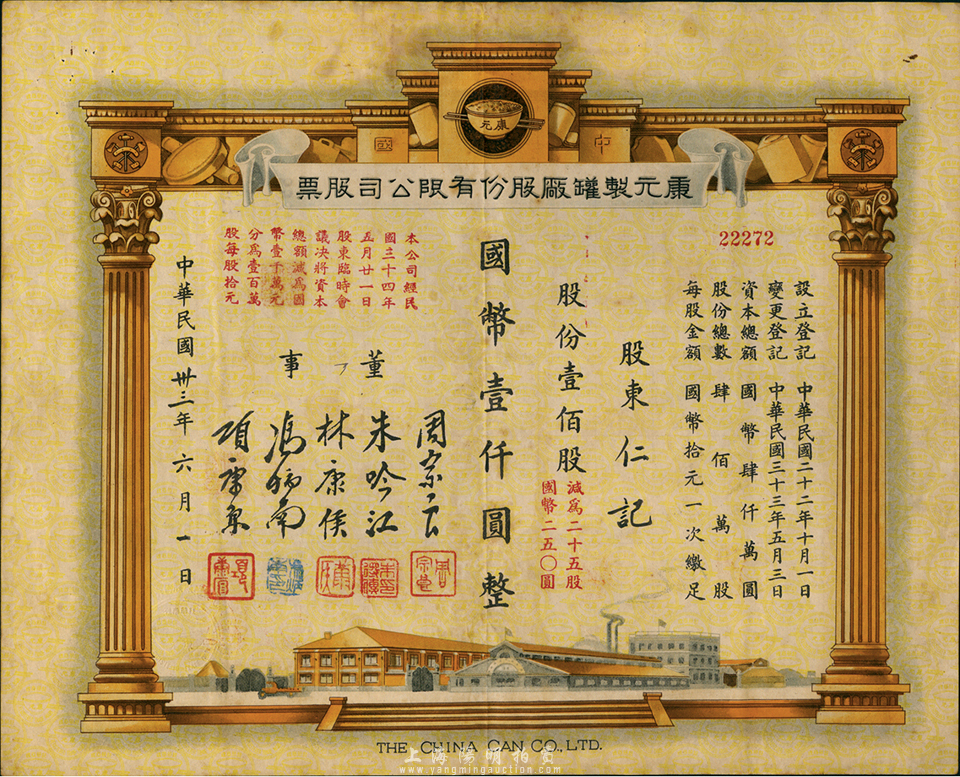 康元
中
國
康元製罐廠股份有限公司股票
22272
設立登記 中華民國二十二年十月一日
變更登記 中華民國三十三年五月三日
資本總額 國幣肆仟萬圓
股份總數 肆佰萬股
每股金額 國幣拾元一次繳足
股東仁記
股份壹佰股
減為二十五股
國幣二五〇圓
國幣壹仟圓整
本公司經民
國三十四年
五月廿一日
股東臨時會
議決將資本
總額減為國
幣壹千萬元
分為壹百萬
股每股拾元
董事
朱吟江
林康侯
馮炳南
項康原
中華民國卅三年六月一日
THE CHINA CAN CO., LTD.
上海陽明拍賣
www.yangmingauction.com